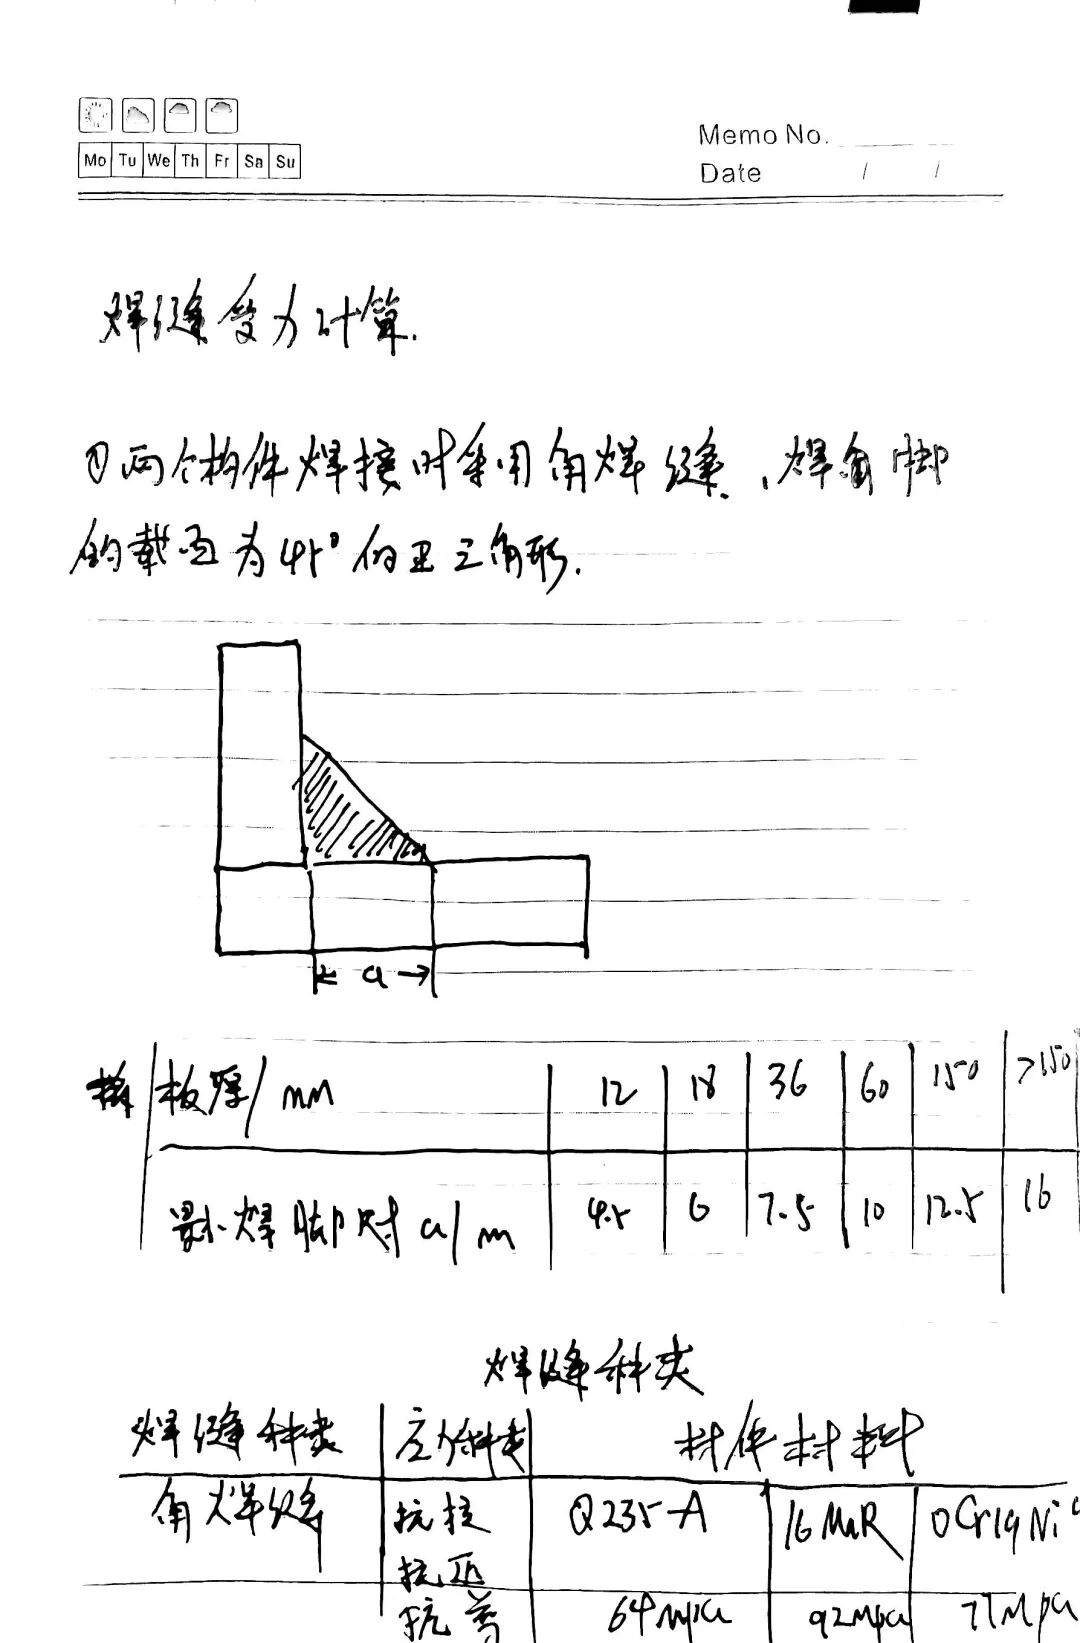 Mo Tu We Th Fr Sa Su
Memo No.
Date / /
焊缝受力计算.
①两个构件焊接时采用角焊缝、焊角脚
的截面为45°的正三角形.
a
板厚/mm 12 18 36 60 150 >150
最小焊脚尺寸a/m 4.5 6 7.5 10 12.5 16
焊缝种类
焊缝种类 应力种类 材件材料
角焊缝 抗拉 Q235-A 16MnR 0Cr19Ni
抗压
抗弯 64mpa 92Mpa 77Mpa